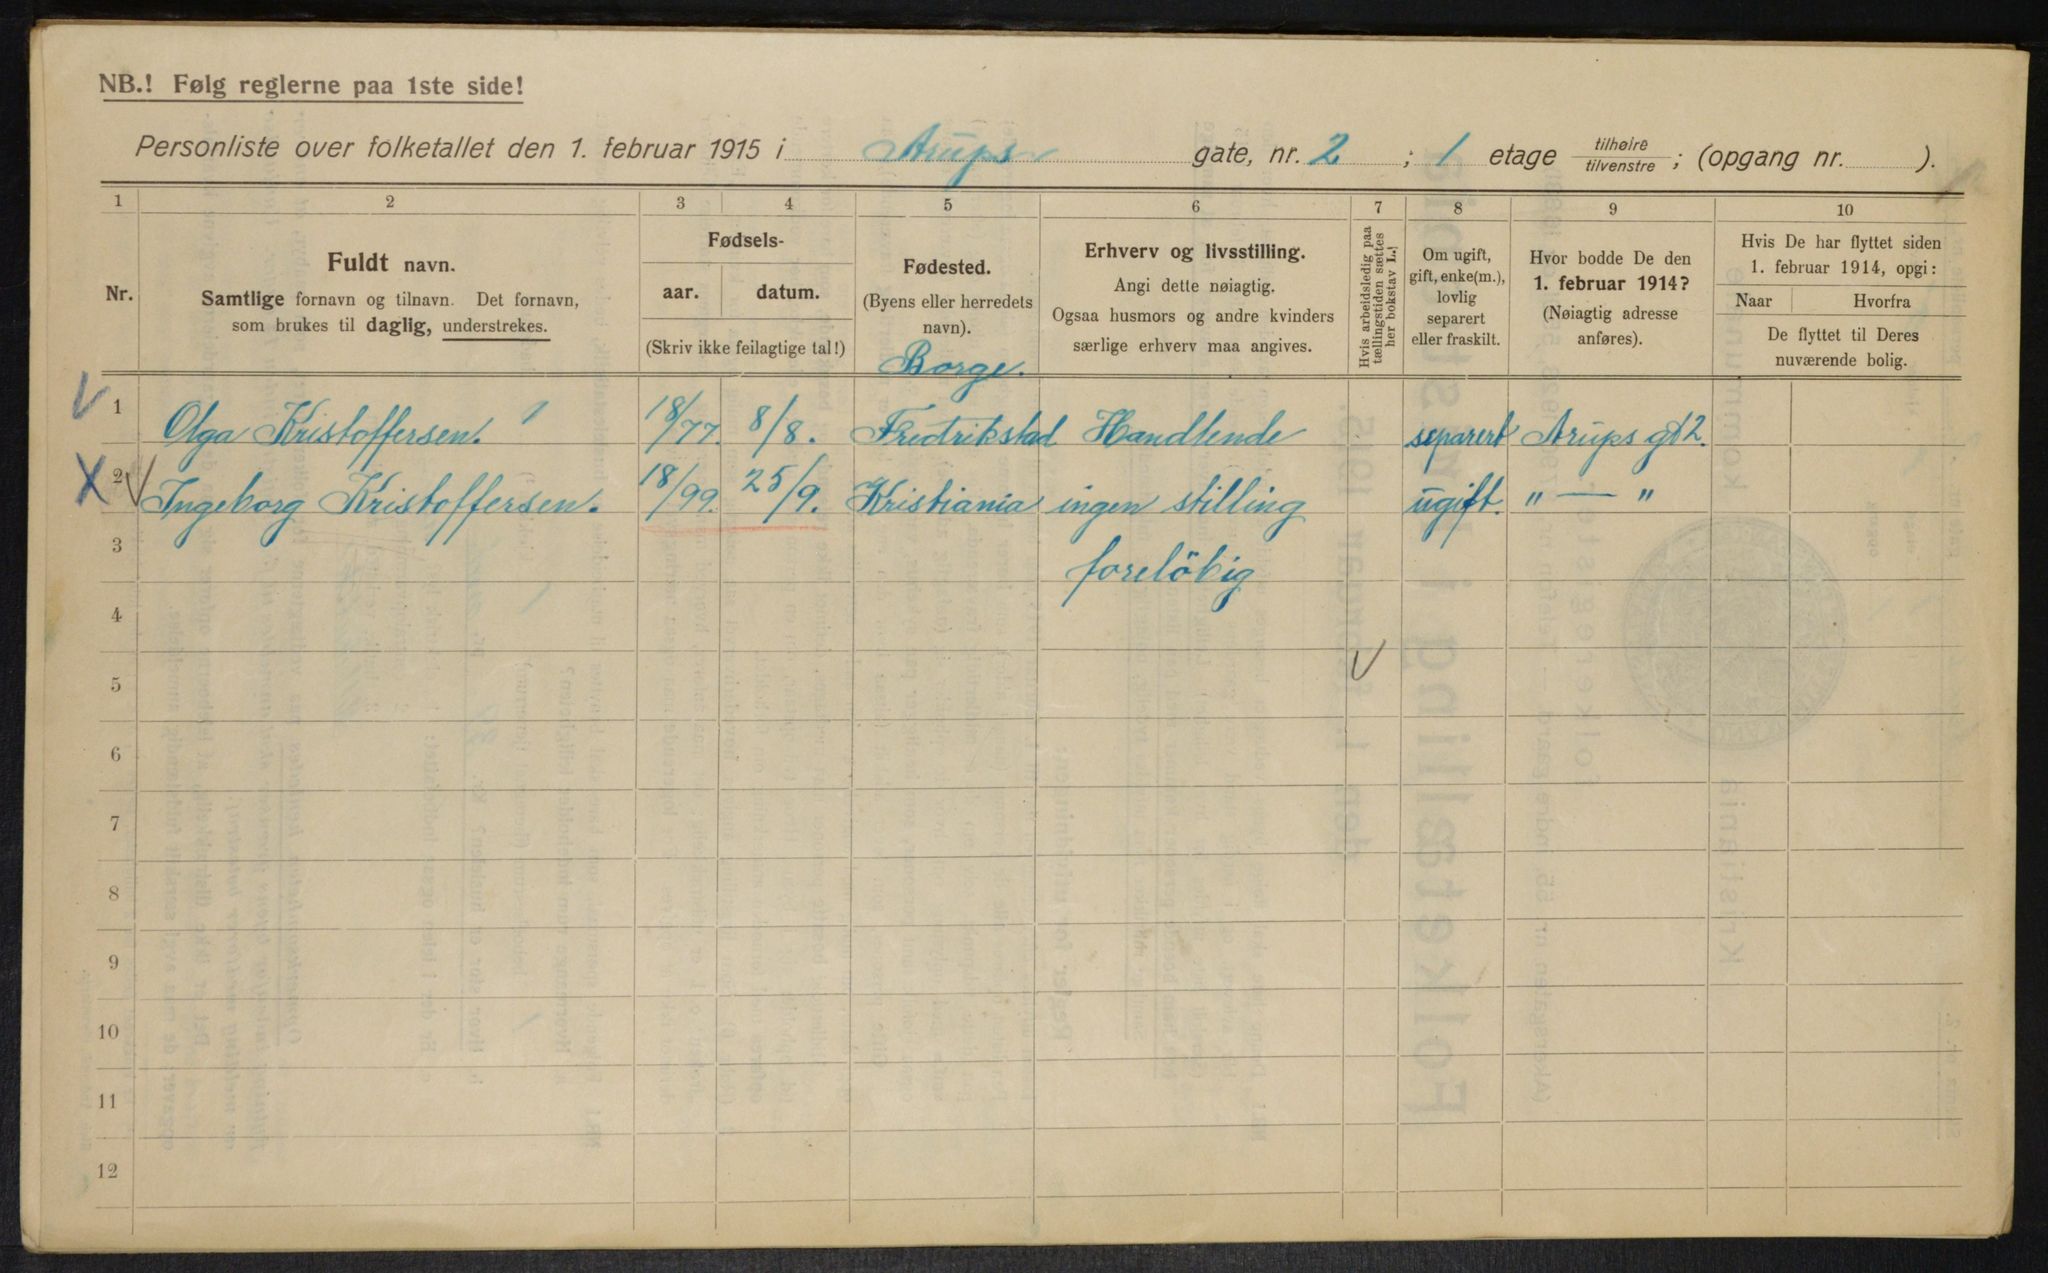 NB.! Følg reglerne paa 1ste side!
Personliste over folketallet den 1. februar 1915 i Arups gate, nr. 2 ; 1 etage tilhøire tilvenstre ; (opgang nr. ).
1 2 3 4 5 6 7 8 9 10
Nr.
Fuldt navn.
Samtlige fornavn og tilnavn. Det fornavn,
som brukes til daglig, understrekes.
Fødsels-
aar. datum.
(Skriv ikke feilagtige tal!)
Fødested.
(Byens eller herredets
navn).
Erhverv og livsstilling.
Angi dette nøiagtig.
Ogsaa husmors og andre kvinders
særlige erhverv maa angives.
Hvis arbeidsledig paa
tællingstiden sættes
her bokstav L.!
Om ugift,
gift, enke(m.),
lovlig
separert
eller fraskilt.
Hvor bodde De den
1. februar 1914?
(Nøiagtig adresse
anføres).
Hvis De har flyttet siden
1. februar 1914, opgi:
Naar Hvorfra
De flyttet til Deres
nuværende bolig.
Borge.
1 Olga Kristoffersen. 18/77. 8/8. Fredrikstad Handlende separert Arups gt 2.
2 Ingeborg Kristoffersen. 18/99. 25/9. Kristiania ingen stilling ugift. " — "
3 foreløbig
4
5
6
7
8
9
10
11
12